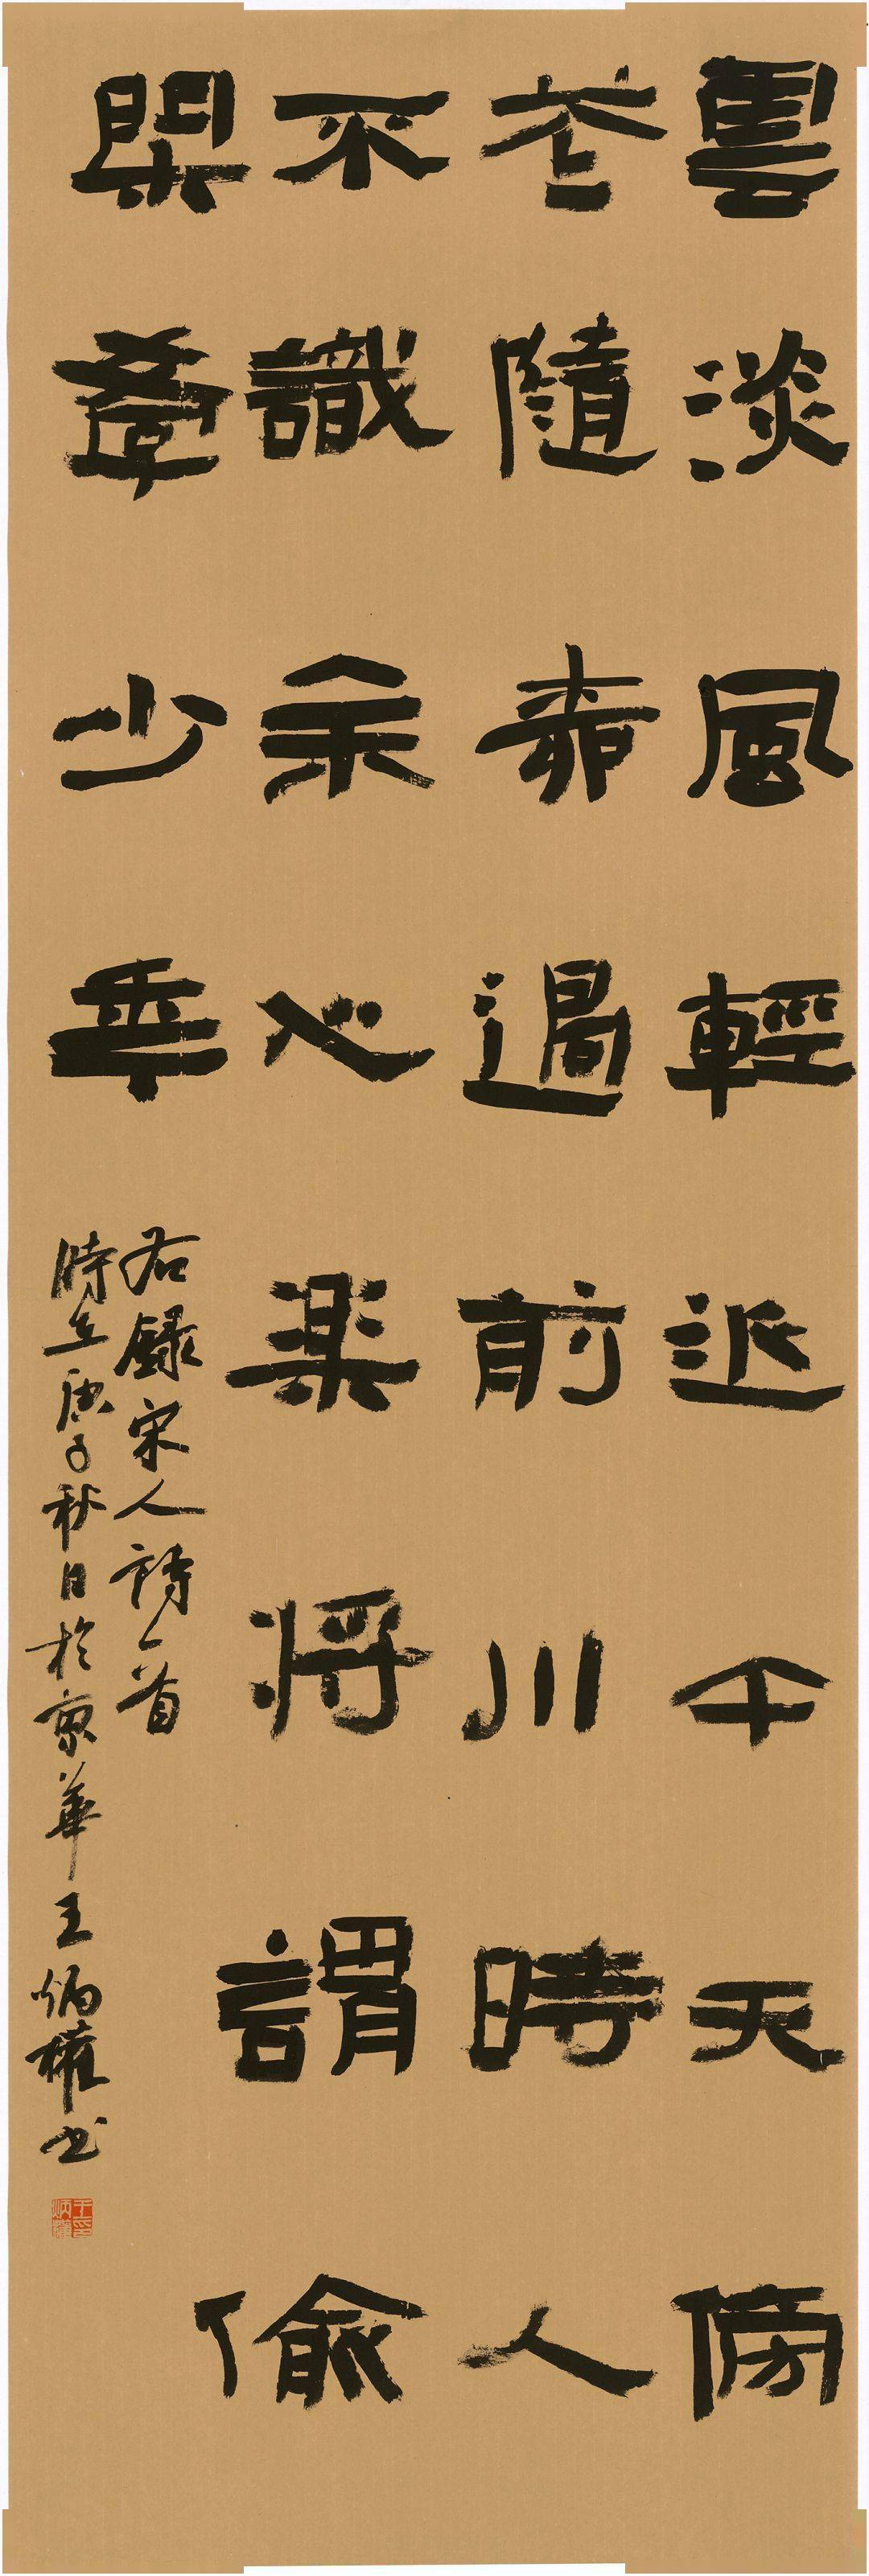 雲淡風輕近午天傍
花隨柳過前川時人
不識余心樂將謂偷
閑學少年
右錄宋人詩一首
時在庚子秋日於京華王炳權书
王印炳權